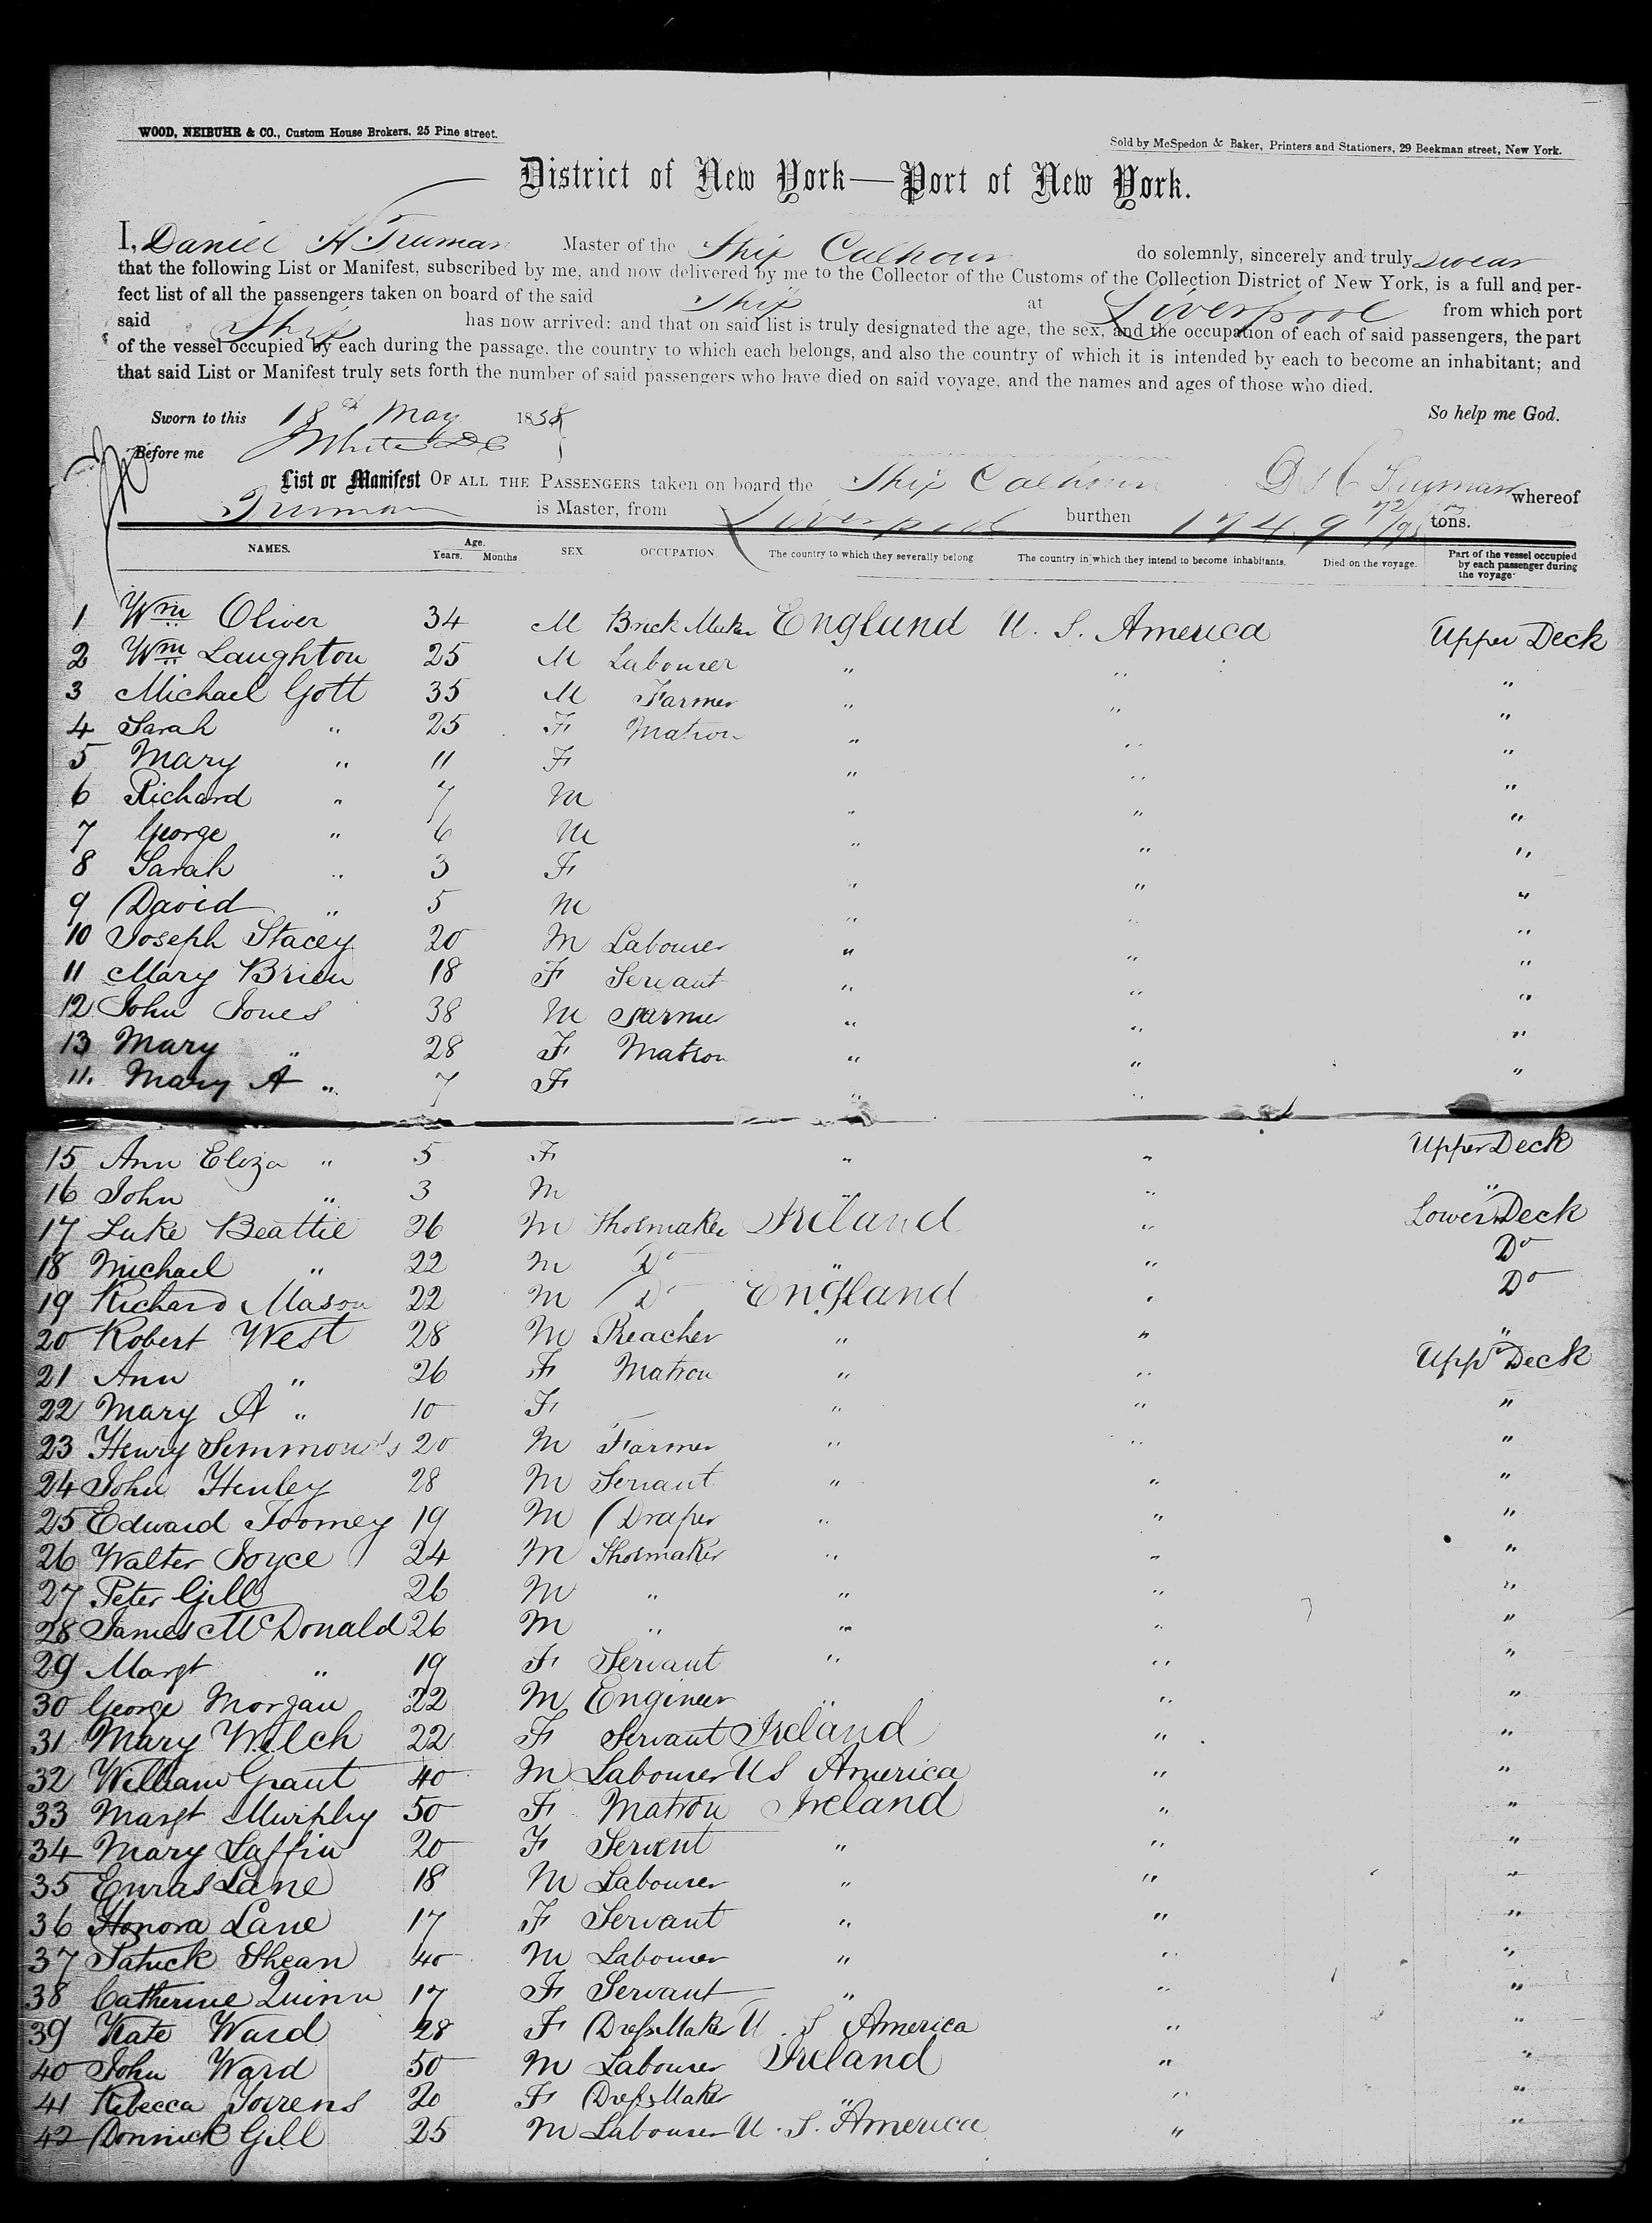 WOOD, NEIBUHR & CO., Custom House Brokers, 25 Pine street.
Sold by McSpedon & Baker, Printers and Stationers, 29 Beekman street, New York.
District of New York—Port of New York.
I, Daniel H Truman Master of the Ship Calhoun do solemnly, sincerely and truly swear
that the following List or Manifest, subscribed by me, and now delivered by me to the Collector of the Customs of the Collection District of New York, is a full and per-
fect list of all the passengers taken on board of the said Ship at Liverpool from which port
said Ship has now arrived: and that on said list is truly designated the age, the sex, and the occupation of each of said passengers, the part
of the vessel occupied by each during the passage, the country to which each belongs, and also the country of which it is intended by each to become an inhabitant; and
that said List or Manifest truly sets forth the number of said passengers who have died on said voyage, and the names and ages of those who died.
Sworn to this 18th May 1858 So help me God.
Before me White
List or Manifest OF ALL THE PASSENGERS taken on board the Ship Calhoun D H Truman whereof
Truman is Master, from Liverpool burthen 1749 72/95 tons.
NAMES. Age. Years. Months SEX OCCUPATION The country to which they severally belong The country in which they intend to become inhabitants. Died on the voyage. Part of the vessel occupied by each passenger during the voyage
1 Wm Oliver 34 M Brick Maker England U. S. America Upper Deck
2 Wm Laughton 25 M Labourer " " "
3 Michael Gott 35 M Farmer " " "
4 Sarah " 25 F Matron " " "
5 Mary " 11 F " " "
6 Richard " 7 M " " "
7 George " 6 M " " "
8 Sarah " 3 F " " "
9 David " 5 M " " "
10 Joseph Stacey 20 M Labourer " " "
11 Mary Brien 18 F Servant " " "
12 John Jones 38 M Farmer " " "
13 Mary " 28 F Matron " " "
14 Mary A " 7 F " "
15 Ann Eliza " 5 F " " Upper Deck
16 John " 3 M " " "
17 Luke Beattie 26 M Shoemaker Ireland " Lower Deck
18 Michael " 22 M Do " " Do
19 Richard Mason 22 M Do England " Do
20 Robert West 28 M Preacher " " "
21 Ann " 26 F Matron " " Uppr Deck
22 Mary A " 10 F " " "
23 Henry Simmonds 20 M Farmer " " "
24 John Henley 28 M Servant " " "
25 Edward Toomey 19 M Draper " " "
26 Walter Joyce 24 M Shoemaker " " "
27 Peter Gill 26 M " " " "
28 James McDonald 26 M " " " "
29 Margt " 19 F Servant " " "
30 George Morgan 22 M Engineer " " "
31 Mary Welch 22 F Servant Ireland " "
32 William Grant 40 M Labourer US America " "
33 Margt Murphy 50 F Matron Ireland " "
34 Mary Laffin 20 F Servent " " "
35 Lane 18 M Labourer " " "
36 Honora Lane 17 F Servant " " "
37 Patrick Shean 40 M Labourer " " "
38 Catherine Quinn 17 F Servant " " "
39 Kate Ward 28 F Dress Maker U. S America " "
40 John Ward 50 M Labourer Ireland " "
41 Rebecca 20 F Dress Maker " " "
42 Donnick Gill 25 M Labourer U. S. America " "